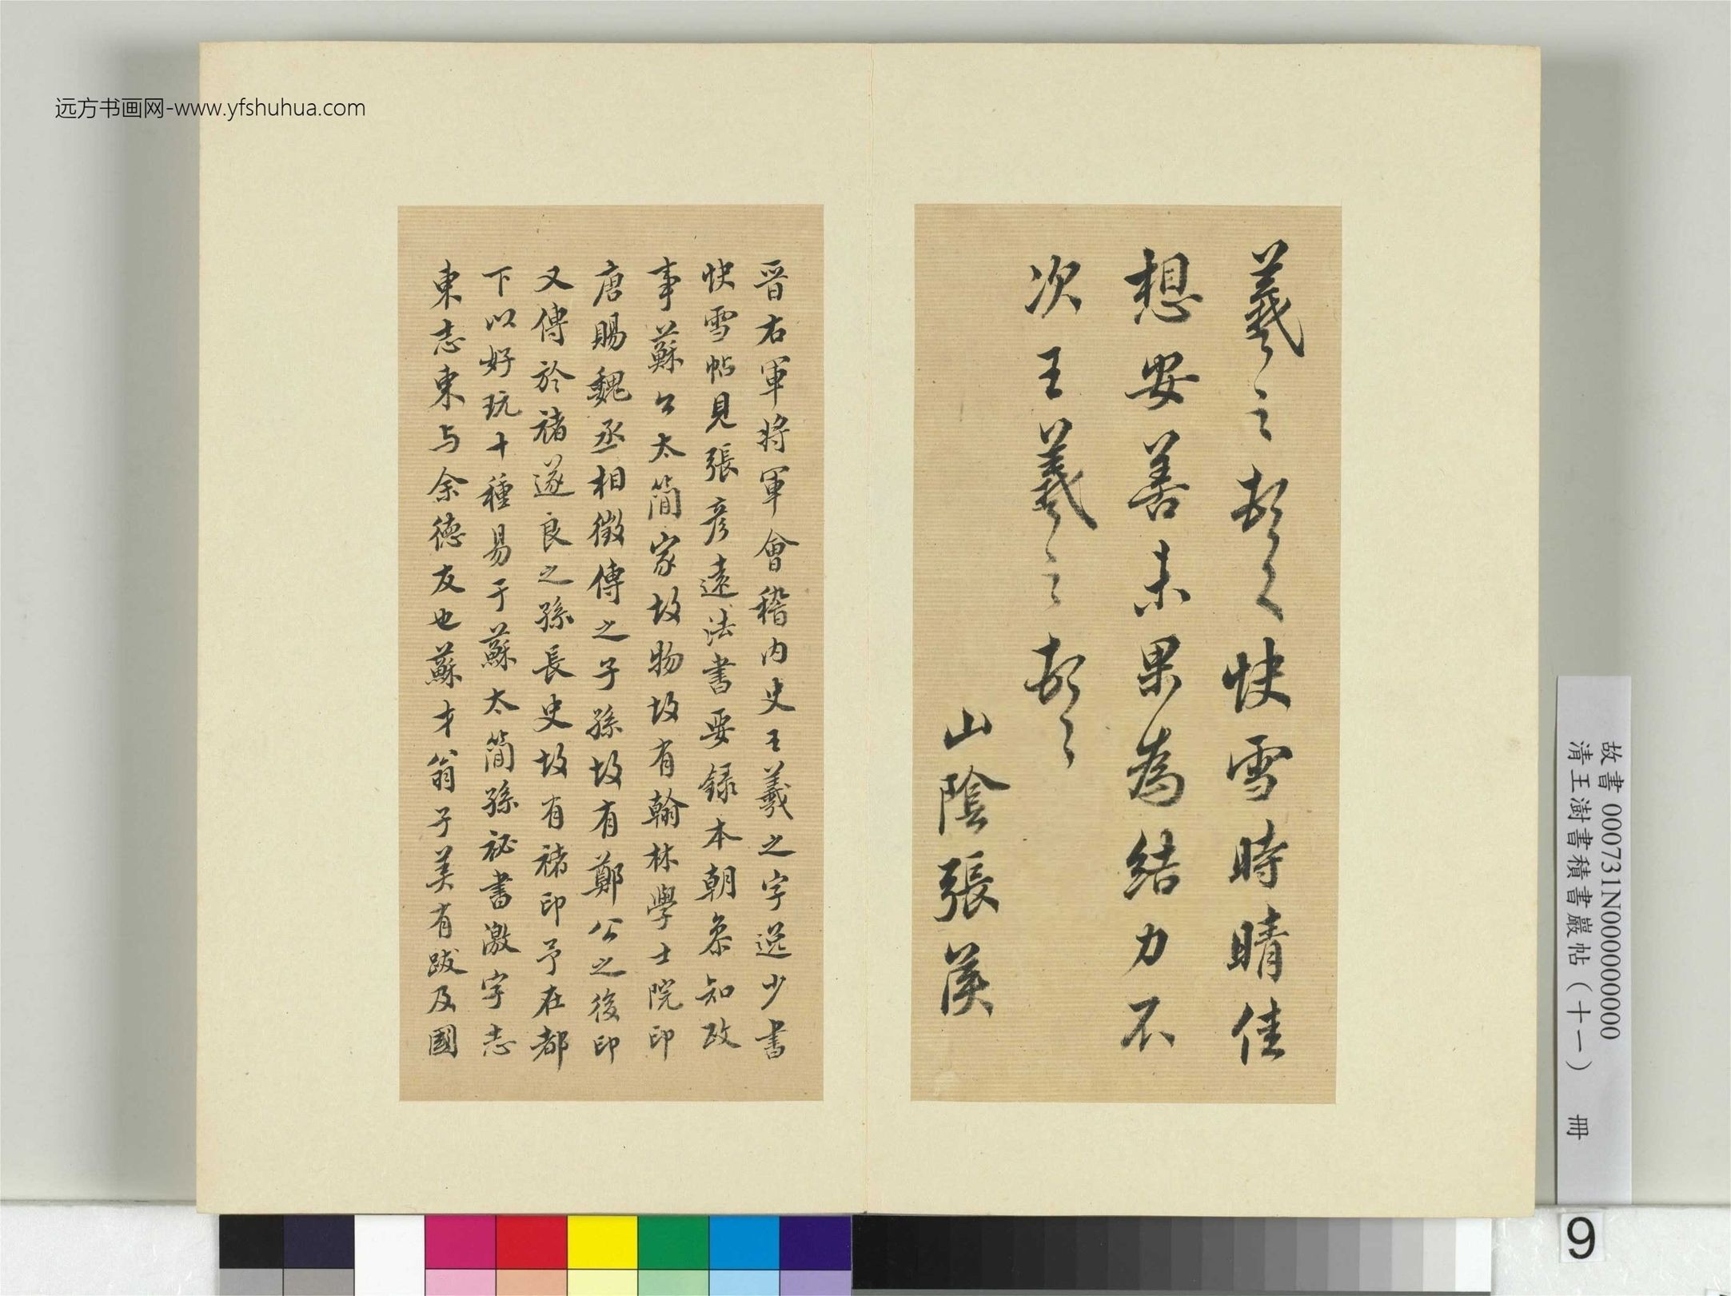 远方书画网-www.yfshuhua.com
羲之頓首快雪時晴佳
想安善未果為結力不
次王羲之頓首
山陰張侯
晉右軍將軍會稽內史王羲之字逸少書
快雪帖見張彦遠法書要録本朝叅知政
事蘇公太簡家故物故有翰林學士院印
唐賜魏丞相徵傳之子孫故有鄭公之後印
又傳於禇遂良之孫長史故有禇印予在都
下以好玩十種易于蘇太簡孫祕書激字志
東志東与余德友也蘇才翁子美有跋及國
故書 000731N000000000
清王澍書積書巖帖（十一） 冊
9